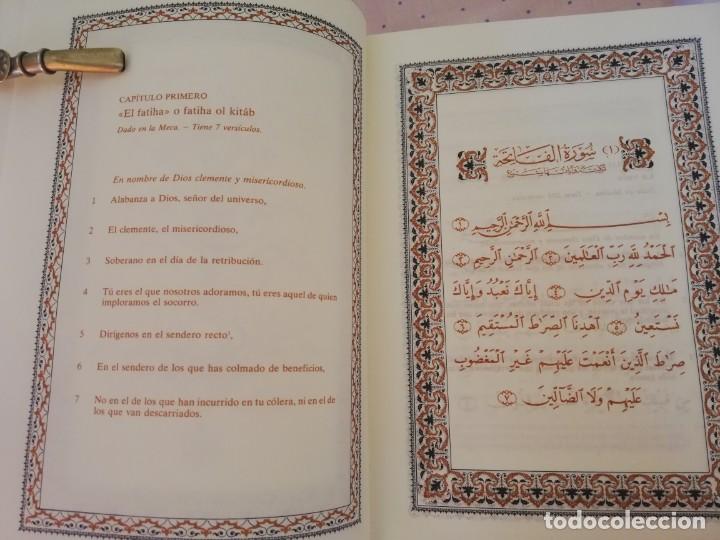 CAPÍTULO PRIMERO
«El fatiha» o fatiha ol kitáb
Dado en la Meca. – Tiene 7 versículos.
En nombre de Dios clemente y misericordioso.
1 Alabanza a Dios, señor del universo,
2 El clemente, el misericordioso,
3 Soberano en el día de la retribución.
4 Tú eres el que nosotros adoramos, tú eres aquel de quien
imploramos el socorro.
5 Dirígenos en el sendero recto¹,
6 En el sendero de los que has colmado de beneficios,
7 No en el de los que han incurrido en tu cólera, ni en el de
los que van descarriados.
(١) سُورَة الفَاتِحَة
بِسْمِ ٱللَّهِ ٱلرَّحْمَٰنِ ٱلرَّحِيمِ ١
ٱلْحَمْدُ لِلَّهِ رَبِّ ٱلْعَٰلَمِينَ ٢ ٱلرَّحْمَٰنِ ٱلرَّحِيمِ ٣
مَٰلِكِ يَوْمِ ٱلدِّينِ ٤ إِيَّاكَ نَعْبُدُ وَإِيَّاكَ
نَسْتَعِينُ ٥ ٱهْدِنَا ٱلصِّرَٰطَ ٱلْمُسْتَقِيمَ ٦
صِرَٰطَ ٱلَّذِينَ أَنْعَمْتَ عَلَيْهِمْ غَيْرِ ٱلْمَغْضُوبِ
عَلَيْهِمْ وَلَا ٱلضَّآلِّينَ ٧
todocoleccion.net